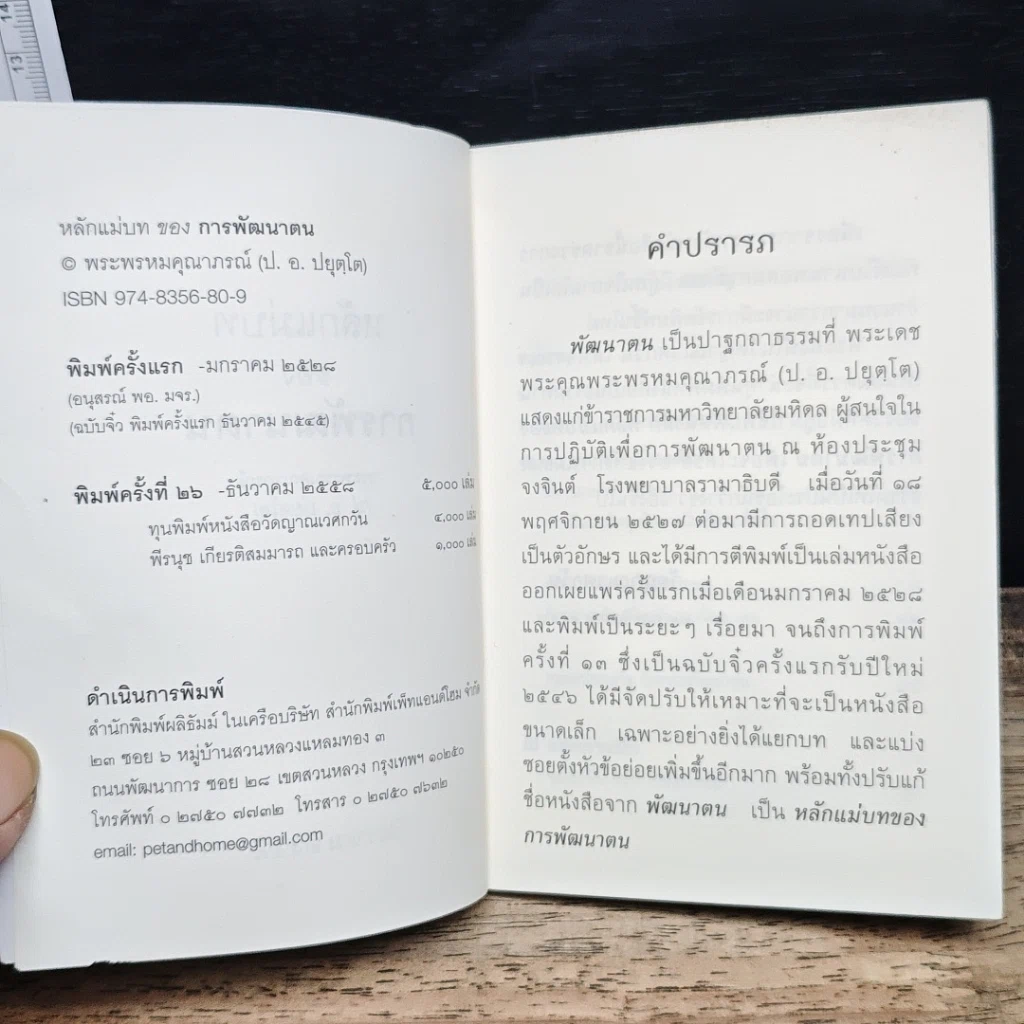 หลักแม่บท ของ การพัฒนาตน
© พระพรหมคุณาภรณ์ (ป. อ. ปยุตฺโต)
ISBN 974-8356-80-9
พิมพ์ครั้งแรก -มกราคม ๒๕๒๘
(อนุสรณ์ พอ. มจร.)
(ฉบับจิ๋ว พิมพ์ครั้งแรก ธันวาคม ๒๕๔๕)
พิมพ์ครั้งที่ ๒๖ -ธันวาคม ๒๕๕๘ ๕,๐๐๐ เล่ม
ทุนพิมพ์หนังสือวัดญาณเวศกวัน ๔,๐๐๐ เล่ม
พีรนุช เกียรติสมมารถ และครอบครัว ๑,๐๐๐ เล่ม
ดำเนินการพิมพ์
สำนักพิมพ์ผลิธัมม์ ในเครือบริษัท สำนักพิมพ์เพ็ทแอนด์โฮม จำกัด
๒๓ ซอย ๖ หมู่บ้านสวนหลวงแหลมทอง ๓
ถนนพัฒนาการ ซอย ๒๘ เขตสวนหลวง กรุงเทพฯ ๑๐๒๕๐
โทรศัพท์ ๐ ๒๗๕๐ ๗๗๓๒ โทรสาร ๐ ๒๗๕๐ ๗๖๓๒
email: petandhome@gmail.com
คำปรารภ
พัฒนาตน เป็นปาฐกถาธรรมที่ พระเดช
พระคุณพระพรหมคุณาภรณ์ (ป. อ. ปยุตฺโต)
แสดงแก่ข้าราชการมหาวิทยาลัยมหิดล ผู้สนใจใน
การปฏิบัติเพื่อการพัฒนาตน ณ ห้องประชุม
จงจินต์ โรงพยาบาลรามาธิบดี เมื่อวันที่ ๑๘
พฤศจิกายน ๒๕๒๗ ต่อมามีการถอดเทปเสียง
เป็นตัวอักษร และได้มีการตีพิมพ์เป็นเล่มหนังสือ
ออกเผยแพร่ครั้งแรกเมื่อเดือนมกราคม ๒๕๒๘
และพิมพ์เป็นระยะๆ เรื่อยมา จนถึงการพิมพ์
ครั้งที่ ๑๓ ซึ่งเป็นฉบับจิ๋วครั้งแรกรับปีใหม่
๒๕๔๖ ได้มีจัดปรับให้เหมาะที่จะเป็นหนังสือ
ขนาดเล็ก เฉพาะอย่างยิ่งได้แยกบท และแบ่ง
ซอยตั้งหัวข้อย่อยเพิ่มขึ้นอีกมาก พร้อมทั้งปรับแก้
ชื่อหนังสือจาก พัฒนาตน เป็น หลักแม่บทของ
การพัฒนาตน
14
13